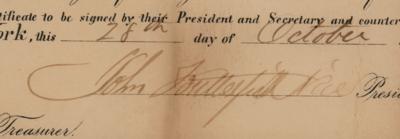 rtificate to be signed by their President and Secretary and counter
ork, this 28th day of October
John Butterfield Vice Presid
Treasurer.